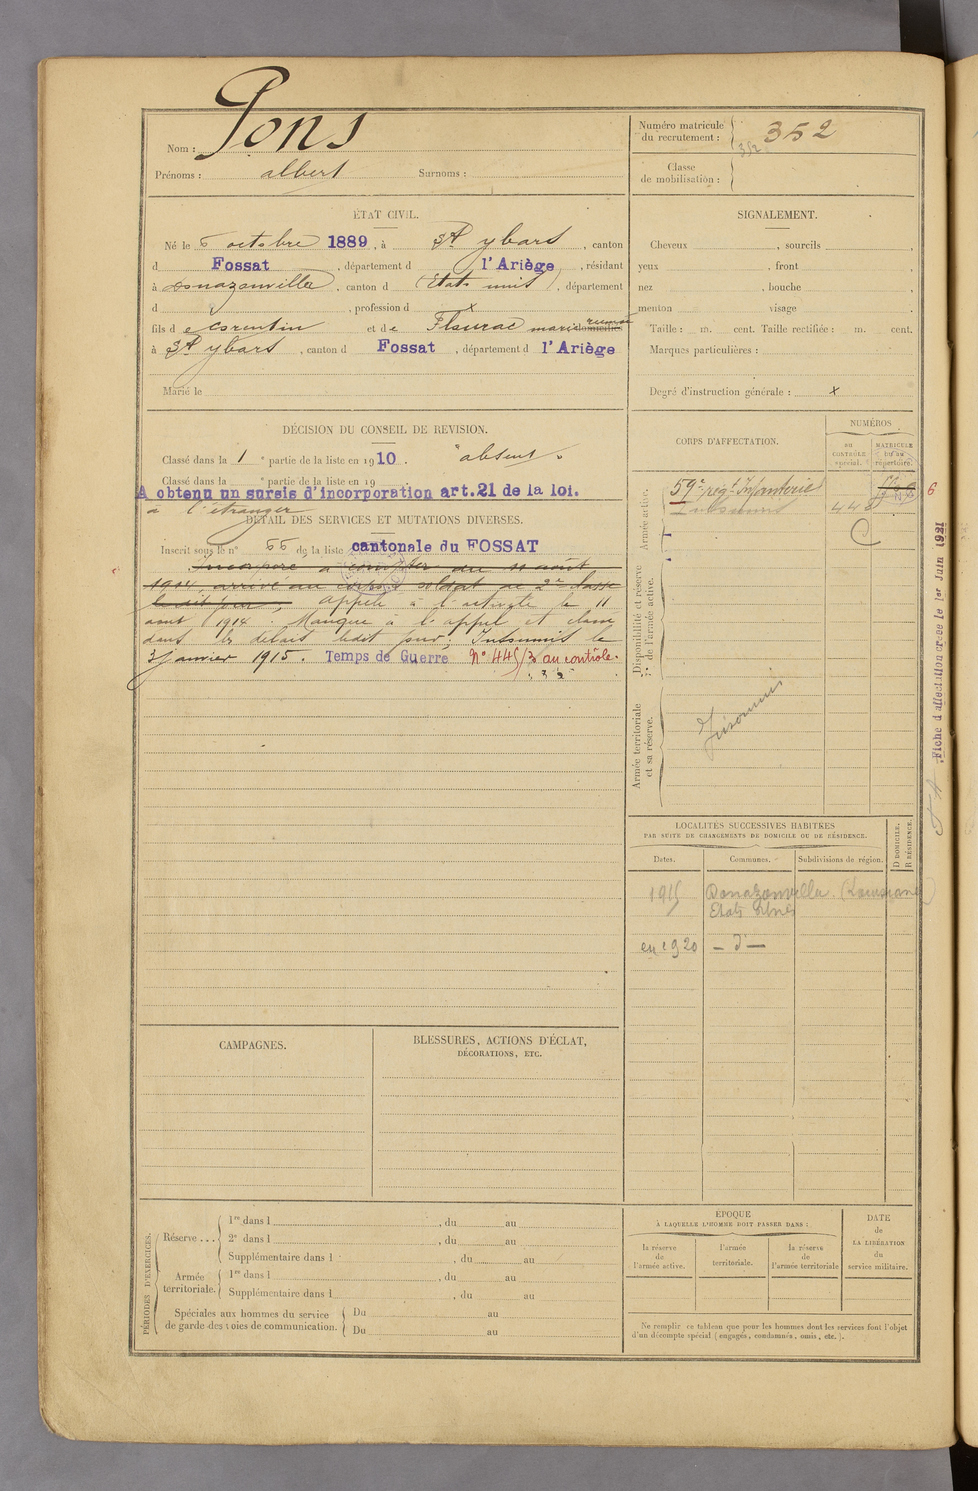 Nom : Pons
Prénoms : albert Surnoms :
Numéro matricule du recrutement : 352
352
Classe de mobilisation :
ÉTAT CIVIL.
Né le 6 octobre 1889, à St ybars, canton
d Fossat, département d l'Ariège, résidant
à Donazonville, canton d (Etats unis), département
d , profession d x
fils d e Corentin et de Fleurac marie domiciliés
à St ybars, canton d Fossat, département d l'Ariège
Marié le
SIGNALEMENT.
Cheveux , sourcils ,
yeux , front ,
nez , bouche ,
menton visage
Taille : m. cent. Taille rectifiée : m. cent.
Marques particulières :
Degré d'instruction générale : x
DÉCISION DU CONSEIL DE REVISION.
Classé dans la 1e partie de la liste en 1910. "absent".
Classé dans la e partie de la liste en 19
A obtenu un sursis d'incorporation art.21 de la loi.
à l'étranger
DÉTAIL DES SERVICES ET MUTATIONS DIVERSES.
Inscrit sous le n° 55 de la liste cantonale du FOSSAT
Incorporé à compter du 11 août
1914, arrivé au corps & soldat de 2e classe
le dit jour, appelé à l'activité le 11
aout 1914. Manque à l'appel et
dans les délais ledit jour; Insoumis le
3 janvier 1915. Temps de Guerre N° 445/3 au contrôle.
CORPS D'AFFECTATION.
NUMÉROS
au CONTRÔLE spécial.
MATRICULE ou au répertoire.
Armée active.
59e régt Infanterie
Insoumis 448
6
C
Disponibilité et réserve de l'armée active.
Armée territoriale et sa réserve.
Insoumis
Fiche d'affectation créée le 1er Juin 1921
LOCALITÉS SUCCESSIVES HABITÉES
PAR SUITE DE CHANGEMENTS DE DOMICILE OU DE RÉSIDENCE.
Dates. Communes. Subdivisions de région. D DOMICILE. R RÉSIDENCE.
1915 Donazonville (Louisiane)
Etats Unis
en 1920 — d° —
CAMPAGNES.
BLESSURES, ACTIONS D'ÉCLAT,
DÉCORATIONS, ETC.
PÉRIODES D'EXERCICES.
Réserve ... 1re dans l , du au
2e dans l , du au
Supplémentaire dans l , du au
Armée territoriale. 1re dans l , du au
Supplémentaire dans l , du au
Spéciales aux hommes du service de garde des voies de communication. Du au
Du au
ÉPOQUE
À LAQUELLE L'HOMME DOIT PASSER DANS :
la réserve de l'armée active.
l'armée territoriale.
la réserve de l'armée territoriale
DATE de LA LIBÉRATION du service militaire.
Ne remplir ce tableau que pour les hommes dont les services font l'objet
d'un décompte spécial (engagés, condamnés, omis, etc.).